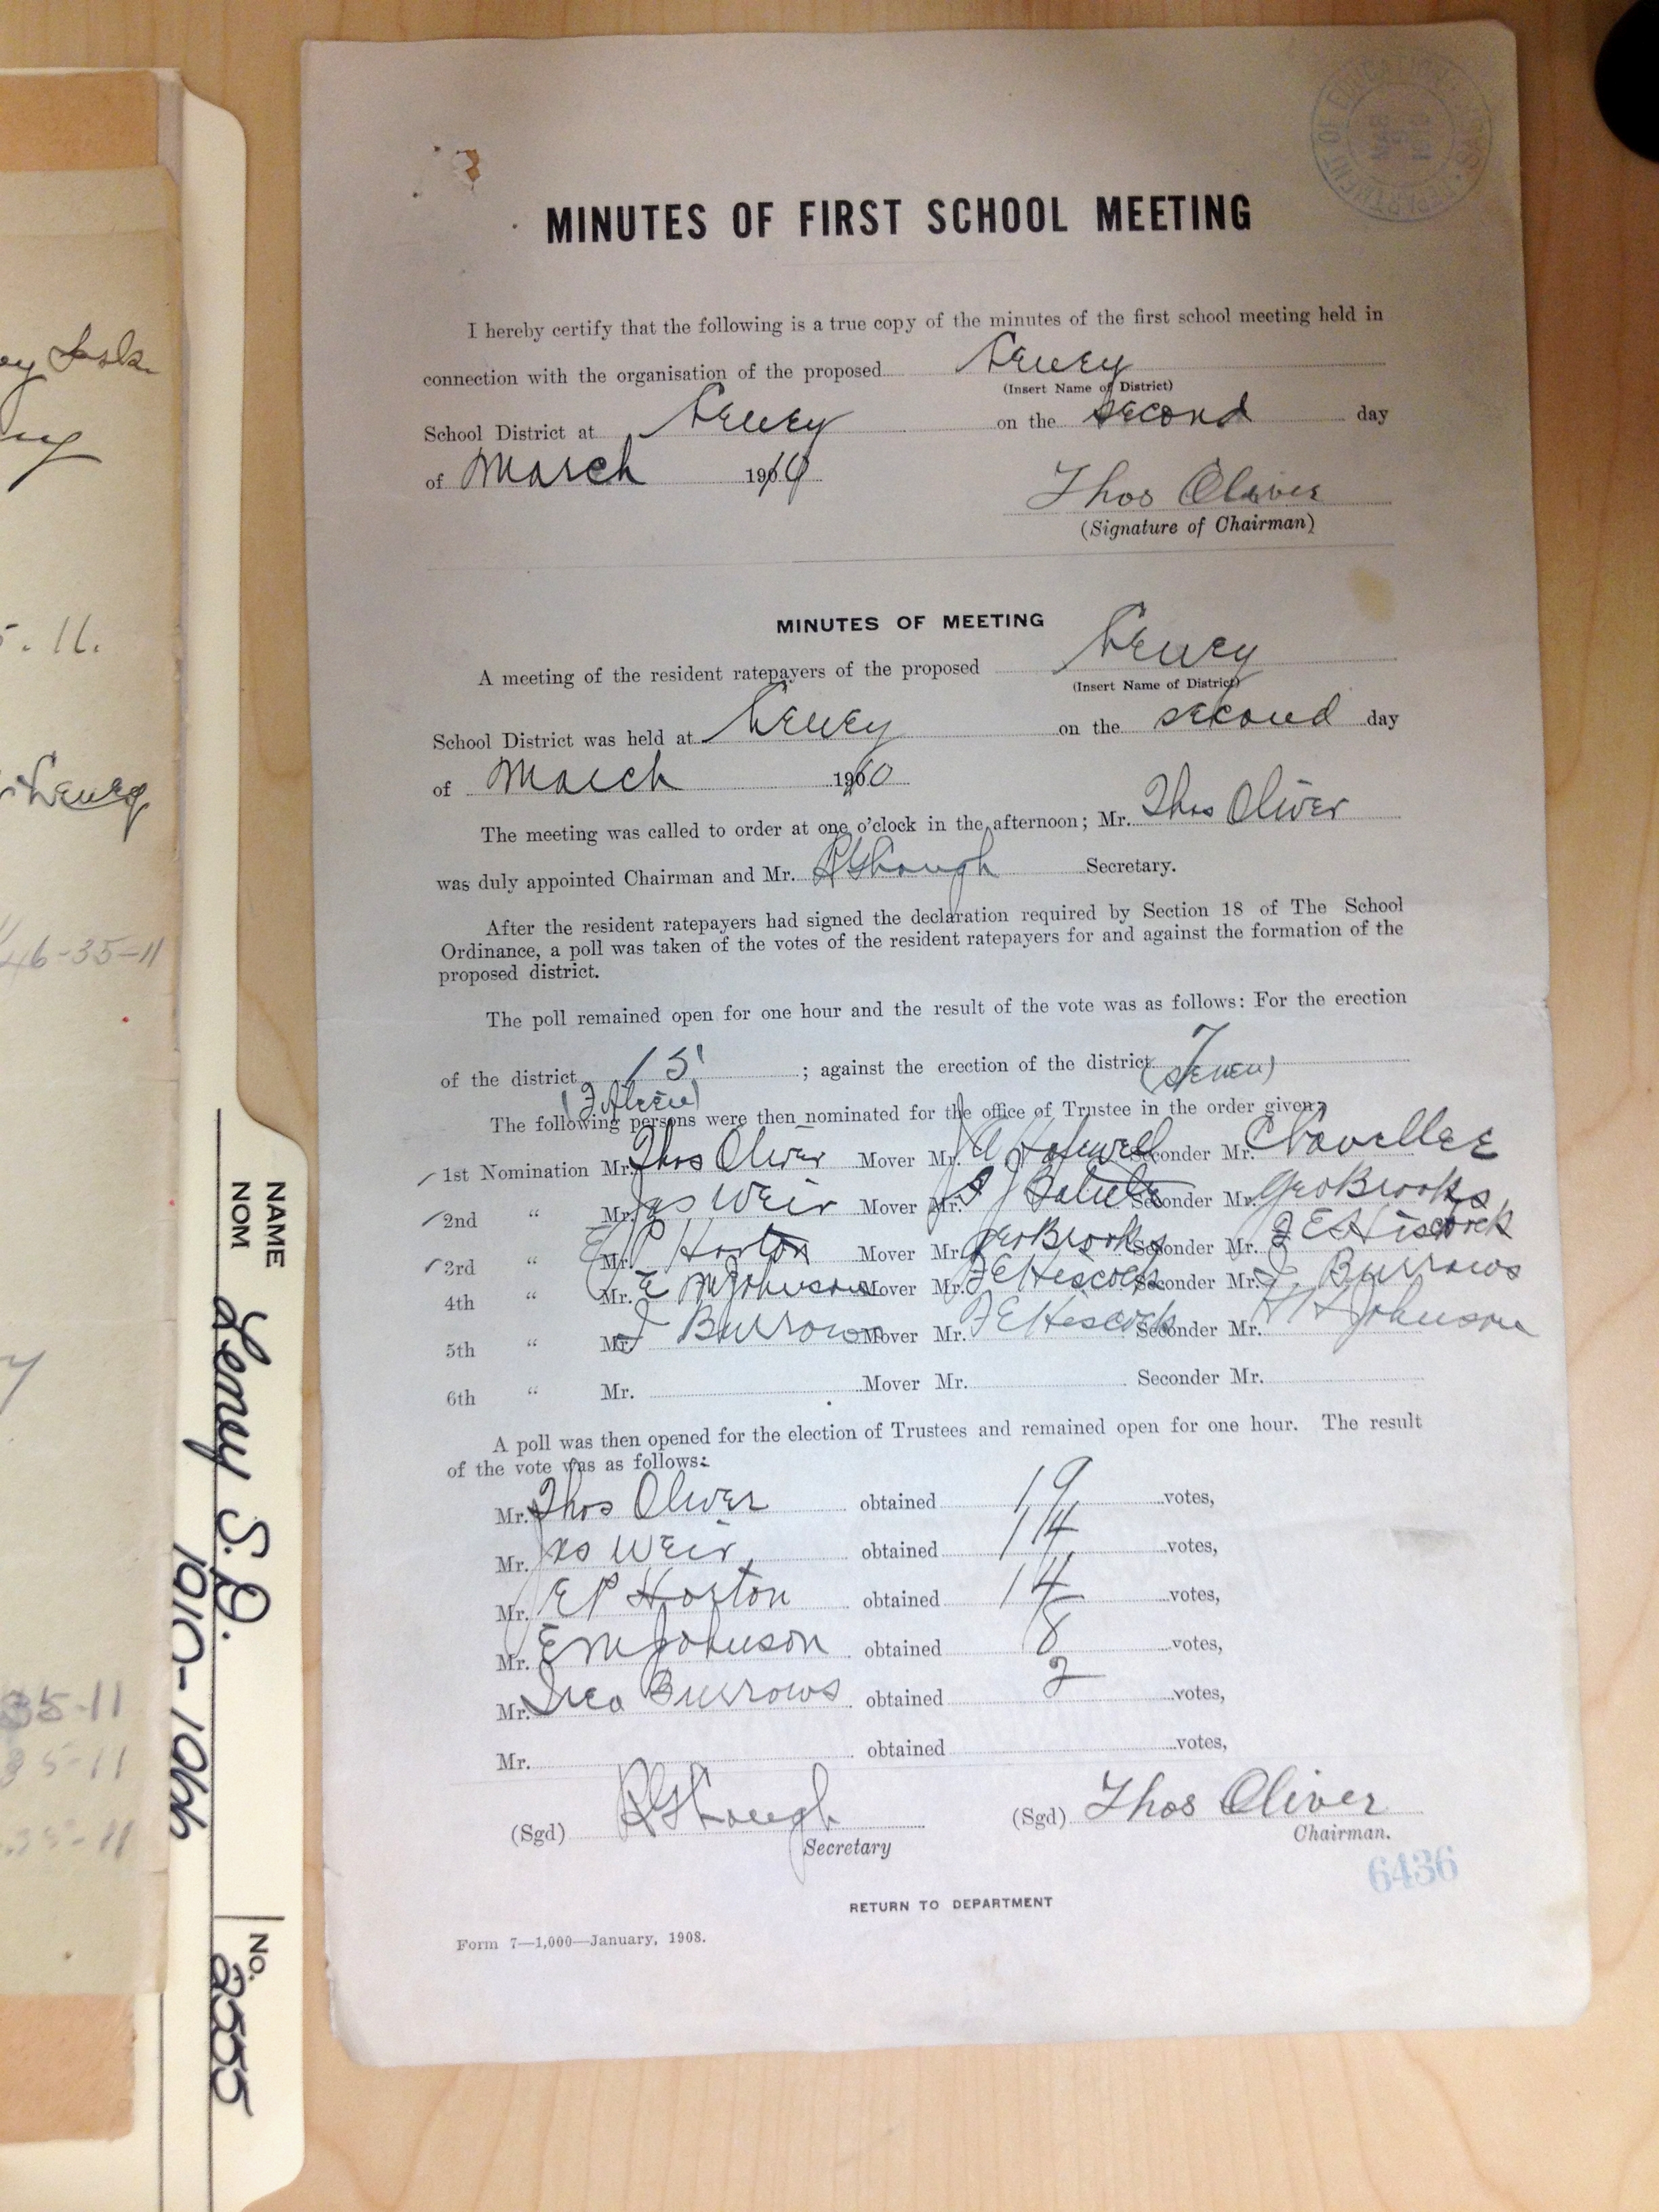 DEPARTMENT OF EDUCATION
MAR
MINUTES OF FIRST SCHOOL MEETING
I hereby certify that the following is a true copy of the minutes of the first school meeting held in
connection with the organisation of the proposed Leney
(Insert Name of District)
School District at Leney on the second day
of March 1910
Thos Oliver
(Signature of Chairman)
MINUTES OF MEETING
A meeting of the resident ratepayers of the proposed Leney
(Insert Name of District)
School District was held at Leney on the second day
of March 1910
The meeting was called to order at one o'clock in the afternoon; Mr. Thos Oliver
was duly appointed Chairman and Mr. Secretary.
After the resident ratepayers had signed the declaration required by Section 18 of The School
Ordinance, a poll was taken of the votes of the resident ratepayers for and against the formation of the
proposed district.
The poll remained open for one hour and the result of the vote was as follows: For the erection
of the district 15 ; against the erection of the district 7
(Fifteen) (seven)
The following persons were then nominated for the office of Trustee in the order given:
1st Nomination Mr. Thos Oliver Mover Mr. Seconder Mr.
2nd " Mr. Jas Weir Mover Mr. Seconder Mr. Geo Brooks
3rd " Mr. E P Horton Mover Mr. Geo Brooks Seconder Mr. F E Hiscock
4th " Mr. E M Johnson Mover Mr. F E Hiscock Seconder Mr. I. Burrows
5th " Mr. I Burrows Mover Mr. F E Hiscock Seconder Mr. Johnson
6th " Mr. Mover Mr. Seconder Mr.
A poll was then opened for the election of Trustees and remained open for one hour. The result
of the vote was as follows:
Mr. Thos Oliver obtained 19 votes,
Mr. Jas Weir obtained 14 votes,
Mr. E P Horton obtained 14 votes,
Mr. E M Johnson obtained 8 votes,
Mr. Burrows obtained 2 votes,
Mr. obtained votes,
(Sgd) (Sgd) Thos Oliver
Secretary Chairman.
6436
RETURN TO DEPARTMENT
Form 7—1,000—January, 1908.
NAME
NOM
Leney S.D.
1910-1944
No.
2555
Sask
5.11.
Leney
46-35-11
35-11
35-11
35-11